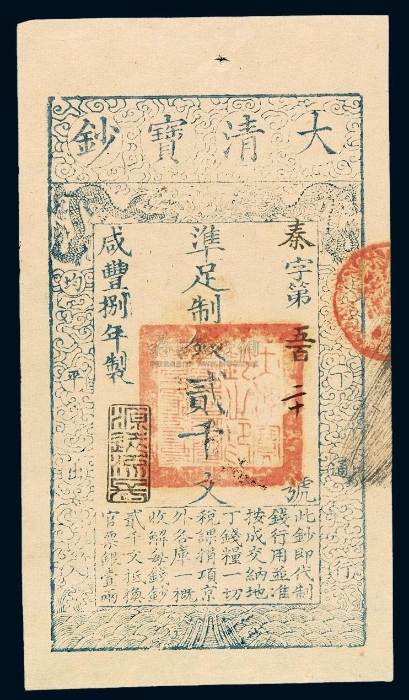 大清寶鈔
下通行
秦字第五百二十號
準足制錢貳千文
咸豐捌年製
均平出入
此鈔即代制
錢行用並准
按成交納地
丁錢糧一切
稅課捐項京
外各庫一概
收解每錢鈔
貳千文抵換
官票銀壹兩